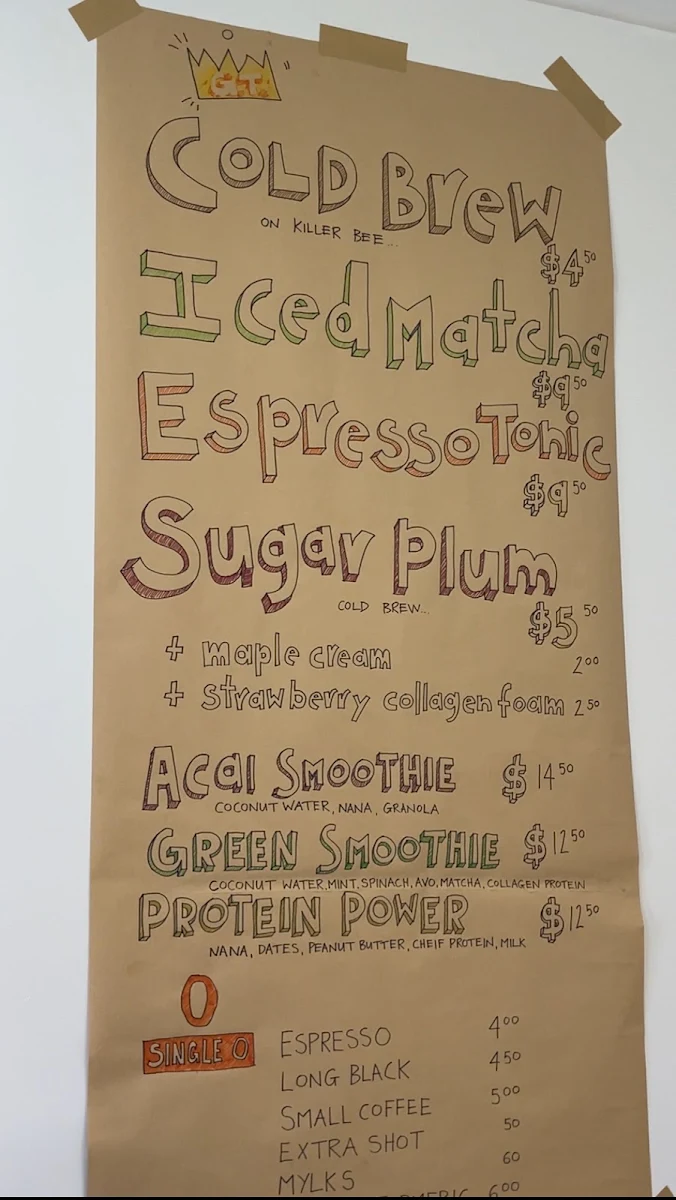 GT
COLD BREW
ON KILLER BEE...
$4 50
Iced Matcha
$9 50
Espresso Tonic
$9 50
Sugar Plum
COLD BREW...
$5 50
+ maple cream 2 00
+ strawberry collagen foam 2 50
Acai SMOOTHIE $14 50
COCONUT WATER, NANA, GRANOLA
GREEN SMOOTHIE $12 50
COCONUT WATER, MINT, SPINACH, AVO, MATCHA, COLLAGEN PROTEIN
PROTEIN POWER $12 50
NANA, DATES, PEANUT BUTTER, CHEIF PROTEIN, MILK
O
SINGLE O
ESPRESSO 4 00
LONG BLACK 4 50
SMALL COFFEE 5 00
EXTRA SHOT 50
MYLKS 60
6 00